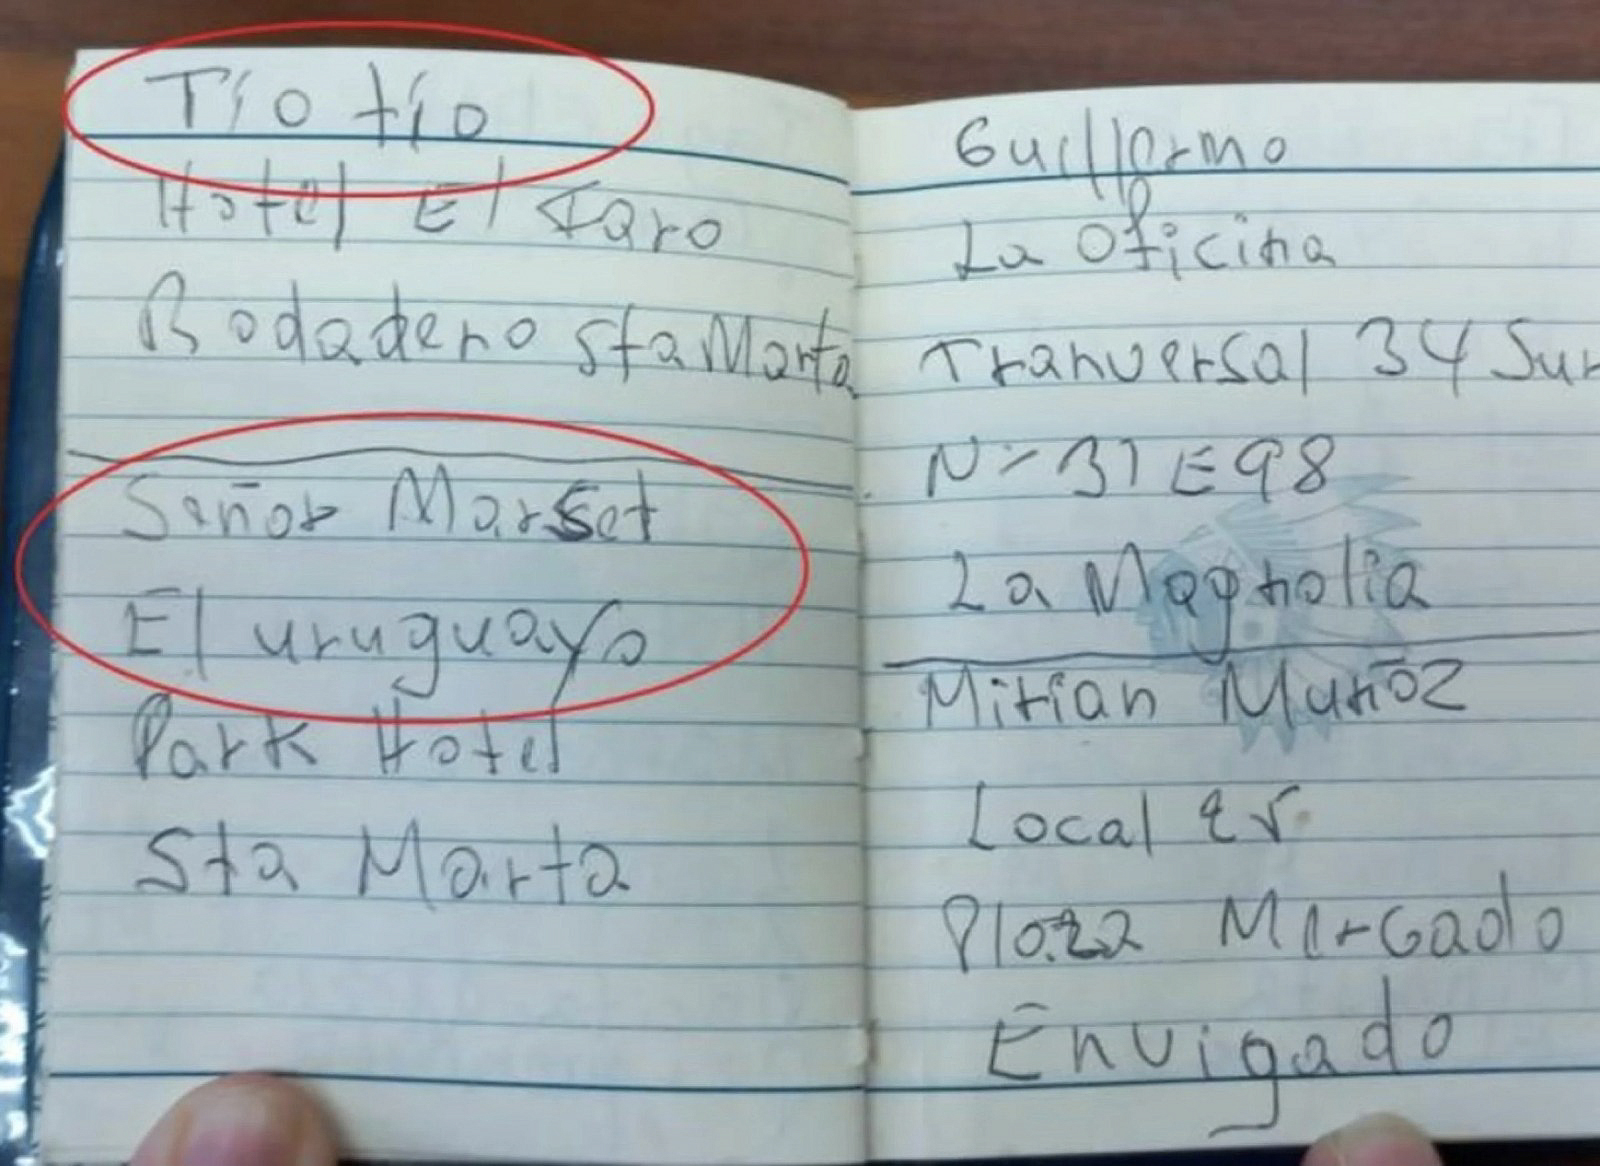 Tío tío
Hotel El Faro
Rodadero Sta Marta
Señor Marset
El uruguayo
Park Hotel
Sta Marta
Guillermo
La Oficina
Tranversal 34 Sur
N= 31 E 98
La Magnolia
Mirian Muñoz
Local
Plaza Mercado
Envigado